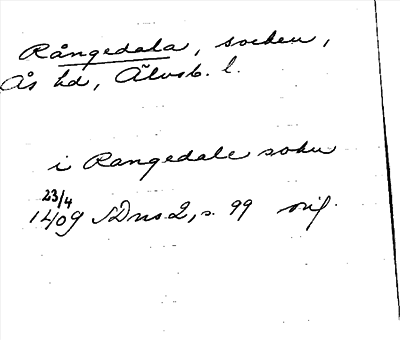 Rångedala, socken,
Ås hd, Älvsb. l.
i Rangedale sokn
23/4
1409 SDns 2, s. 99 orig.